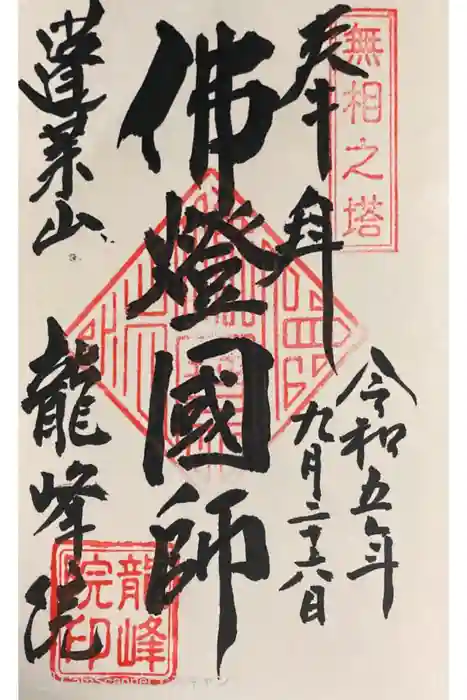 無相之塔
奉拝
令和五年
九月二十六日
佛燈國師
蓬莱山
龍峰院
龍峰
院印